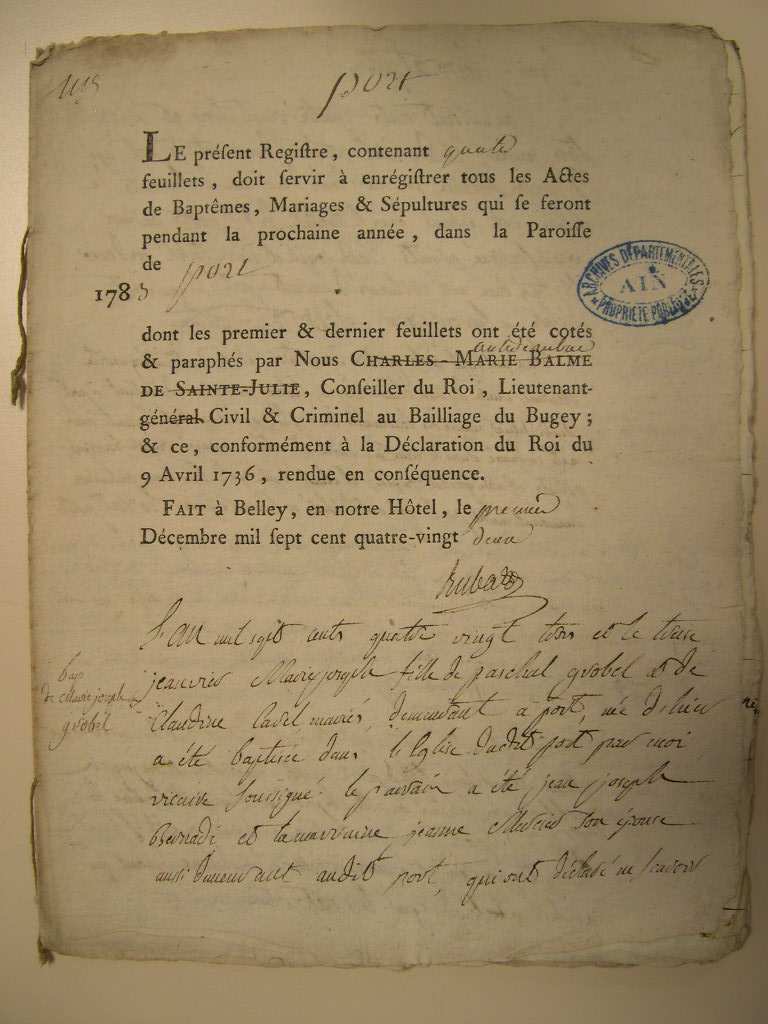 port
LE préſent Regiſtre, contenant quatre
feuillets, doit ſervir à enrégiſtrer tous les Actes
de Baptêmes, Mariages & Sépultures qui ſe feront
pendant la prochaine année, dans la Paroiſſe
de port
1783
ARCHIVES DÉPARTEMENTALES
AIN
PROPRIÉTÉ PUBLIQUE
dont les premier & dernier feuillets ont été cotés
& paraphés par Nous CHARLES-MARIE BALME
DE SAINTE-JULIE, Conſeiller du Roi, Lieutenant-
général Civil & Criminel au Bailliage du Bugey;
& ce, conformément à la Déclaration du Roi du
9 Avril 1736, rendue en conſéquence.
FAIT à Belley, en notre Hôtel, le premier
Décembre mil ſept cent quatre-vingt deux
L'an mil sept cents quatre vingt trois et le treise
janvier Marie joseph fille de paschal grobel et de
Claudine Cavel mariés, demeurant a port, née d'hier
a été baptisée dans l'Eglise dudit port par moi
vicaire soussigné. le parrain a été jean joseph
et la marraine jeanne son épouse
aussi demeurant audit port, qui ont déclaré ne scavoir
bap
de Marie joseph
grobel